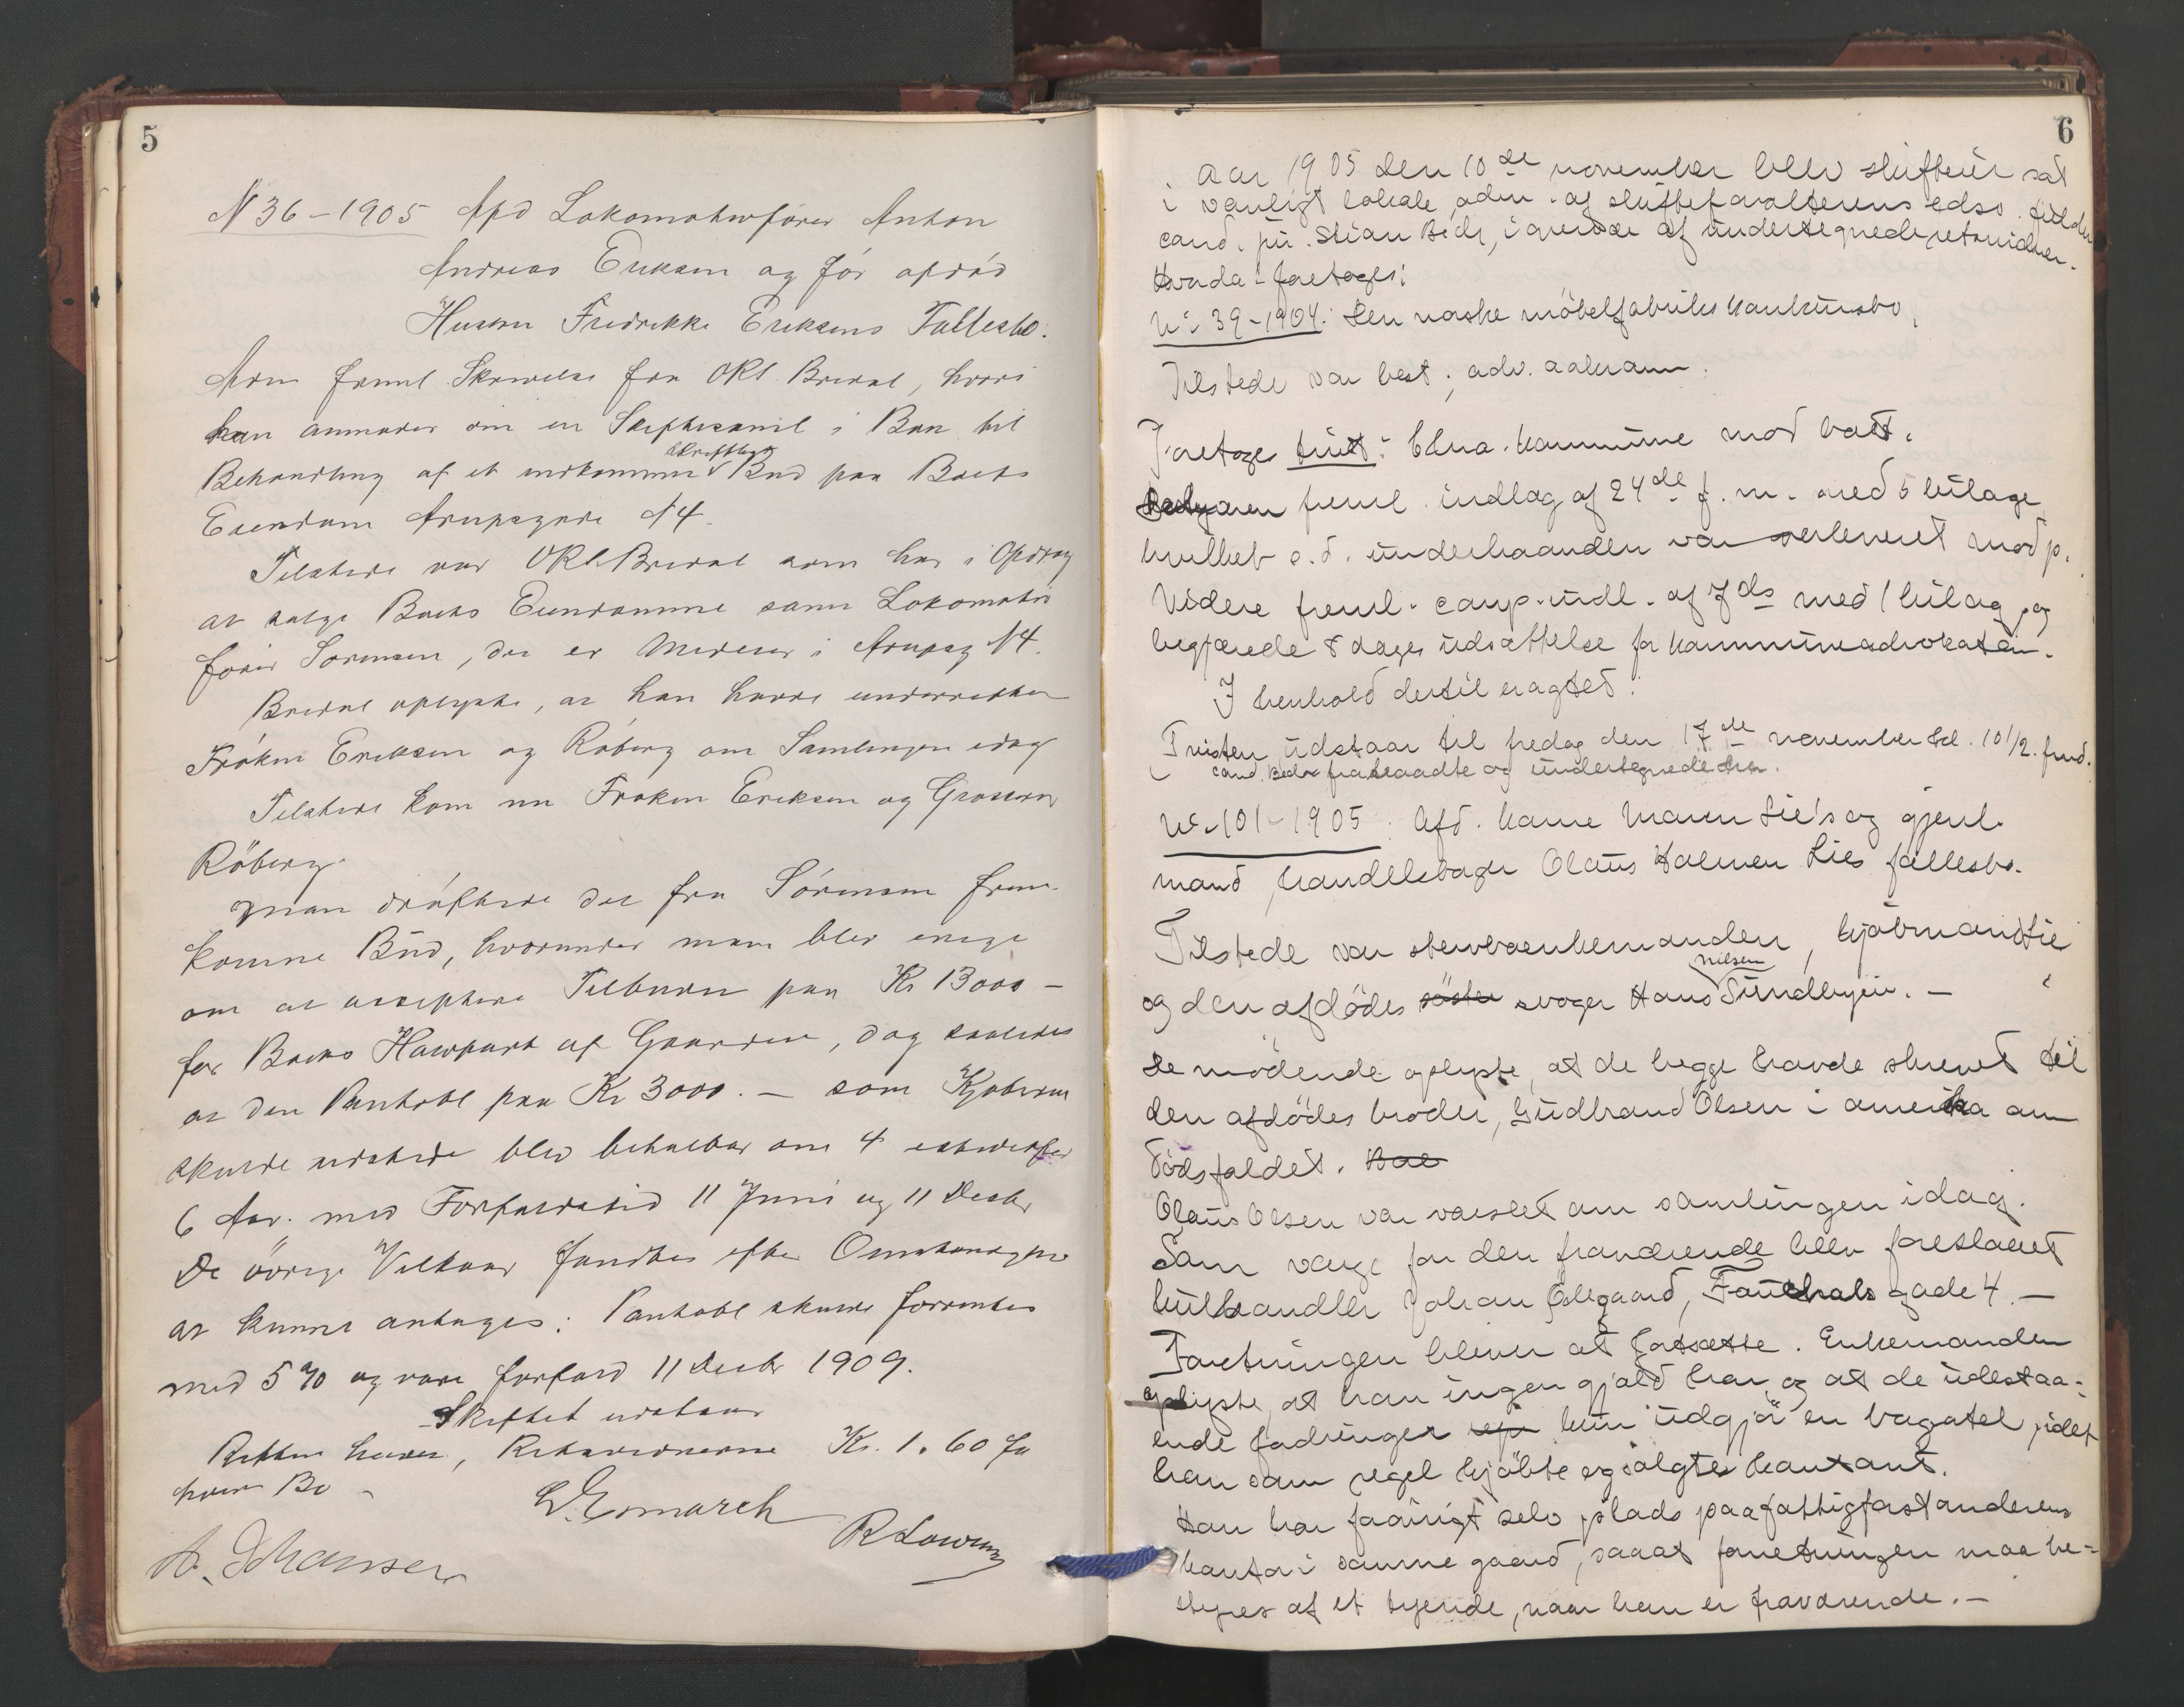 5
N 36 - 1905 Afd Lokomotivförer Anton
Andreas Eriksen og för afdöd
Hustru Fredrikke Eriksens Fællesbo.
Adm freml Skrivelse fra ORS. Bredal, hvori
han anmoder om en Skiftesaml i Boet til
Behandling af et indkommet skriftligt Bud paa Boets
Eiendom Arupsgade N4.
Tilstede var ORS. Bredal som har i Opdrag
at sælge Boets Eiendomme samt Lokomotiv
förer Sörensen, der er Medeier i Arupsg N4.
Bredal oplyste, at han havde underrettet
Fröken Eriksen og Röberg om Samlingen idag
Tilstede kom nu Fröken Eriksen og Grosserer
Röberg.
Man dröftede det fra Sörensen frem-
komne Bud, hvorunder man blev enige
om at acceptere Tilbudet paa Kr 13000 -
for Boets Halvpart af Gaarden, dog saaledes
at den Pantobl paa Kr 3000. - som Kjöberen
skulde udstede blev betalbar om 4 istedetfor
6 Aar. med Forfaldstid 11 Juni og 11 Decbr
De övrige Vilkaar fandtes efter Omstændighe
at kunne antages: Pantobl skulde forrentes
med 5 % og være forfald 11 Decbr 1909.
Skiftet udstaar
Retten hævet, Retsvidnerne Kr. 1.60 for
hvert Bo -
L. Esmarch
R Lowum
A. Johansen
6
Aar 1905 den 10de november blev skifteret sat
i vanligt lokale, adm. af skifteforvalterens edsv. fuldm
cand. jur. Stian Bech, i overvær af undertegnede retsvidner.
Hvorda foretoges:
No 39-1904. Den norske möbelfabriks konkursbo,
Tilstede var best; adv. Aakrann.
Foretoges tvist: Chra. kommune mod boet.
freml. indlæg af 24de f. m. med 5 bilage
hvilket e.d. underhaanden var leveret modp.
Videre freml. comp. indl. af 7ds med 1 bilag, og
begjærede 8 dages udsættelse for kommuneadvokaten.
I henhold dertil eragtet:
Tvisten udstaar til fredag den 17de november kl. 10 1/2. frmd.
Cand. Bech fratraadte og undertegnede
No 101-1905. Afd. kone Maren Lie's og gjenl.
mand, handelsbager Olaus Halvor Lies fællesbo.
Tilstede var stervboenkemanden, kjöbmand Lie
og den afdödes söster svoger Hans Nilsen Sundbyeie. -
De mödende oplyste, at de begge havde skrevet til
den afdödes broder, Gudbrand Olsen i amerika om
Dödsfaldet. Boe
Olaus Olsen var varslet om samlingen idag.
Som verge for den fraværende blev foreslaaet
kulhandler Johan Ödegaard, Fauchalds gade 4. -
Forretningen bliver at fortsætte. Enkemanden
oplyste, at han ingen gjæld har, og at de udestaa-
ende fordringer kun udgjör en bagatel, idet
han som regel kjöbte og solgte kontant.
Han har forövrigt selv plads paa fattigforstanderens
kontor i samme gaard, saaat forretningen maa be-
styres af et tyende, naar han er fraværende. -